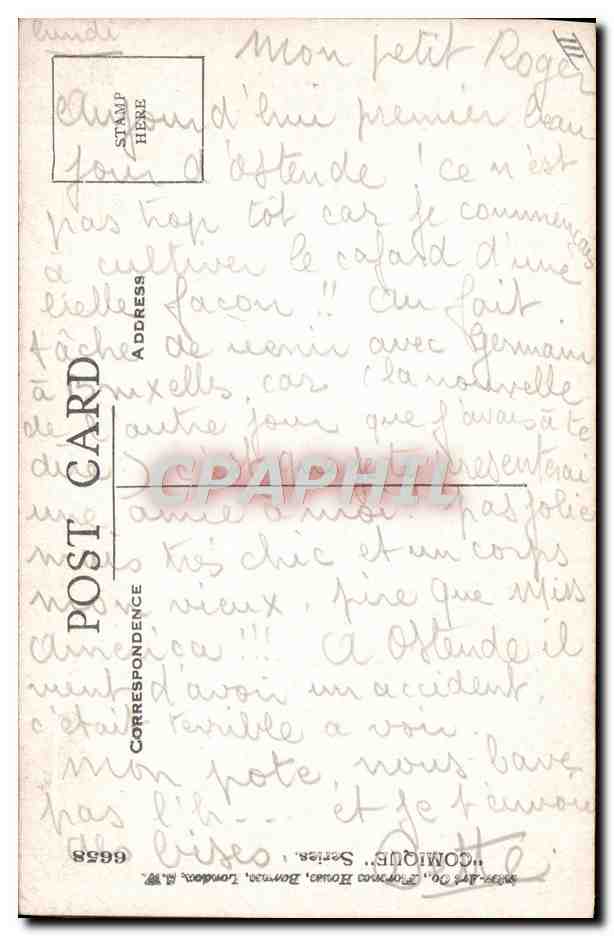 lundi
III
Mon petit Roger
Aujourd'hui premier beau
jour d'Ostende ! ce n'est
pas trop tôt car je commençais
à cultiver le cafard d'une
belle façon !! Au fait
tâche de venir avec Germain
à Bruxelles, car (la nouvelle
de l'autre jour que j'avais à te
dire) presenterai
une amie à moi. pas jolie
mais très chic et un corps
mon vieux, pire que Miss
America !!! A Ostende il
vient d'avoir un accident,
c'était terrible a voir.
Mon pote, nous
pas l'h... et je t'envoie
bises.
STAMP
HERE
POST CARD
ADDRESS
CORRESPONDENCE
CPAPHIL
"COMIQUE" Series.
6658
Art Co., House, London,